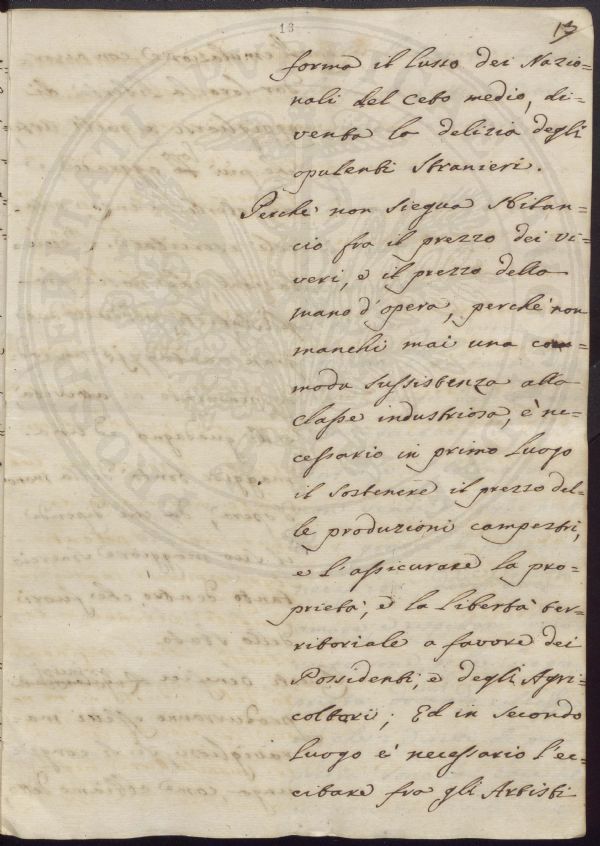 13
13
forma il lusso dei Nazio=
nali del Ceto medio, di=
venta la delizia degli
opulenti Stranieri.
Perchè non siegua sbilan=
cio fra il prezzo dei vi=
veri, e il prezzo della
mano d'opera, perchè non
manchi mai una com=
moda sussistenza alla
Classe industriosa, è ne=
cessario in primo luogo
il sostenere il prezzo del=
le produzioni campestri,
e l'assicurare la pro=
prietà, e la libertà ter=
ritoriale a favore dei
Possidenti, e degli Agri=
coltori; Ed in secondo
luogo è necessario l'ec=
citare fra gli Artisti